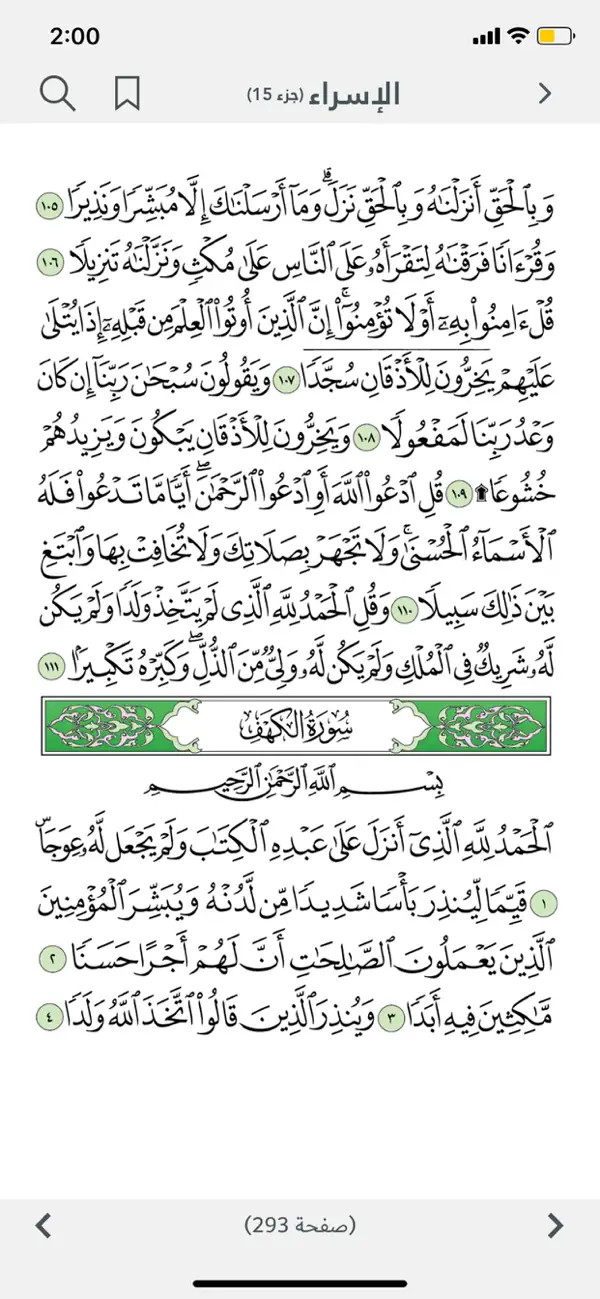 2:00
الإسراء (جزء 15)
وَبِٱلْحَقِّ أَنزَلْنَٰهُ وَبِٱلْحَقِّ نَزَلَ ۗ وَمَآ أَرْسَلْنَٰكَ إِلَّا مُبَشِّرًا وَنَذِيرًا ١٠٥
وَقُرْءَانًا فَرَقْنَٰهُ لِتَقْرَأَهُۥ عَلَى ٱلنَّاسِ عَلَىٰ مُكْثٍ وَنَزَّلْنَٰهُ تَنزِيلًا ١٠٦
قُلْ ءَامِنُوا۟ بِهِۦٓ أَوْ لَا تُؤْمِنُوٓا۟ ۚ إِنَّ ٱلَّذِينَ أُوتُوا۟ ٱلْعِلْمَ مِن قَبْلِهِۦٓ إِذَا يُتْلَىٰ
عَلَيْهِمْ يَخِرُّونَ لِلْأَذْقَانِ سُجَّدًا ١٠٧ وَيَقُولُونَ سُبْحَٰنَ رَبِّنَآ إِن كَانَ
وَعْدُ رَبِّنَا لَمَفْعُولًا ١٠٨ وَيَخِرُّونَ لِلْأَذْقَانِ يَبْكُونَ وَيَزِيدُهُمْ
خُشُوعًا ۩ ١٠٩ قُلِ ٱدْعُوا۟ ٱللَّهَ أَوِ ٱدْعُوا۟ ٱلرَّحْمَٰنَ ۖ أَيًّا مَّا تَدْعُوا۟ فَلَهُ
ٱلْأَسْمَآءُ ٱلْحُسْنَىٰ ۚ وَلَا تَجْهَرْ بِصَلَاتِكَ وَلَا تُخَافِتْ بِهَا وَٱبْتَغِ
بَيْنَ ذَٰلِكَ سَبِيلًا ١١٠ وَقُلِ ٱلْحَمْدُ لِلَّهِ ٱلَّذِى لَمْ يَتَّخِذْ وَلَدًا وَلَمْ يَكُن
لَّهُۥ شَرِيكٌ فِى ٱلْمُلْكِ وَلَمْ يَكُن لَّهُۥ وَلِىٌّ مِّنَ ٱلذُّلِّ ۖ وَكَبِّرْهُ تَكْبِيرًۢا ١١١
سُورَةُ الكَهْفِ
بِسْمِ ٱللَّهِ ٱلرَّحْمَٰنِ ٱلرَّحِيمِ
ٱلْحَمْدُ لِلَّهِ ٱلَّذِىٓ أَنزَلَ عَلَىٰ عَبْدِهِ ٱلْكِتَٰبَ وَلَمْ يَجْعَل لَّهُۥ عِوَجَا ۜ
١ قَيِّمًا لِّيُنذِرَ بَأْسًا شَدِيدًا مِّن لَّدُنْهُ وَيُبَشِّرَ ٱلْمُؤْمِنِينَ
ٱلَّذِينَ يَعْمَلُونَ ٱلصَّٰلِحَٰتِ أَنَّ لَهُمْ أَجْرًا حَسَنًا ٢
مَّٰكِثِينَ فِيهِ أَبَدًا ٣ وَيُنذِرَ ٱلَّذِينَ قَالُوا۟ ٱتَّخَذَ ٱللَّهُ وَلَدًا ٤
(صفحة 293)